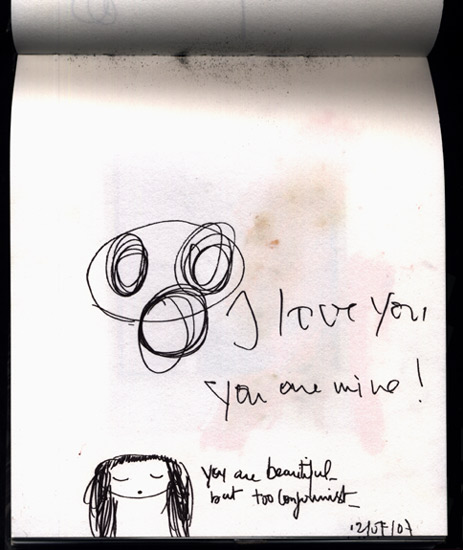 I love you,
you are mine!
you are beautiful_
but too conformist_
12/07/07